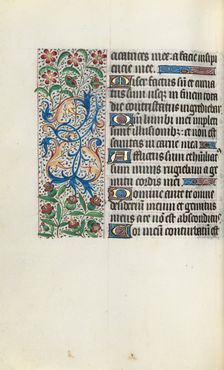 catrices mee: a facie insipi
encie mee.
Miser factus sum et curua
tus sum usq; in finem tota
die contristatus ingrediebar
Qm lumbi mei impleti
sunt illusionib; et non est
sanitas in carne mea
Afflictus sum et humiliat
sum nimis rugiebam a ge
mitu cordis mei
Domine ante te omne
desiderium meum et gemitus
meus a te no est absconditus
Cor meum conturbatum est